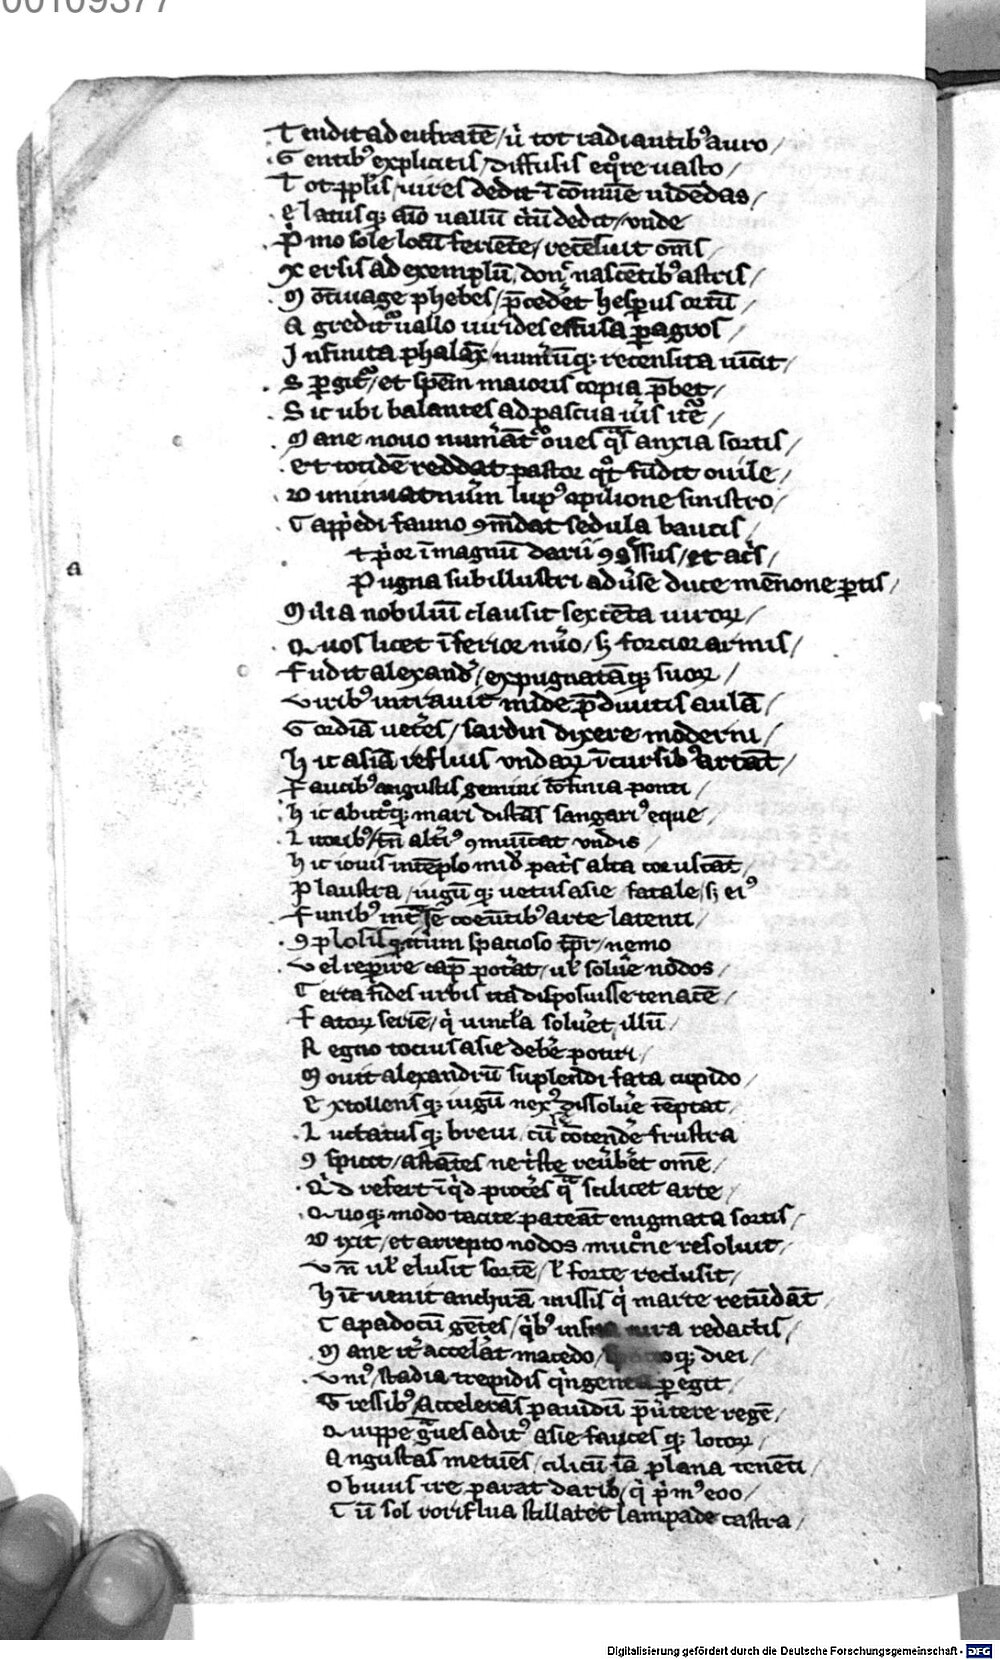 00109377
Tendit ad eufratē / ů tot radiantib᷒ auro /
Gentib᷒ explicitis / diffusis eq̊re uasto /
Tot ꝓpl̓is / uires dedit ī cōmūe uidēdas /
Elatusq; aīo uallū c̓tū dedit / unde
P̓mo sole locū feriēte / rēcēsuit oms /
Xersis ad exemplū, don̓ nascētib᷒ astris /
Noctiuage phebes / p̄cedet hesperus ortū /
Agredit᷑ uallo uirides effusa ꝑ agros /
Infinita phalāx / num̓ūq; recensita uīcit /
Spgit᷑ / et spēm maioris copia p̄bet /
Sic ubi balantes ad pascua uis itē /
Mane nouo num̓at oues q̄s anxia sortis /
Et totidē reddat pastor q̊t fūdit ouile /
Uiminuat nūm lup᷒ opilione sinistro /
Capp̄edi fauno ꝯmēdat sedula baucis /
t p̓or ī magnū darii ꝯgr̄ssus / et ac̓s /
a
Pugna sub illustri aduse duce mēnone ꝑtis /
Milia nobiliū clausit sexcēta uiroꝝ /
Quos licet īferior nūo / ꜩ forcior armis /
Fudit alexand̓ / expugnatāq; suoꝝ /
Virib᷒ intrauit mide p̄diuitis aulā /
Gordiā uet̓es / sardin dixere moderni /
Hic asiā refluis undaꝝ ī cursib᷒ artāt /
Faucib᷒ angustis gemini cōfinia ponti /
Hic ab utōq; mari distās sangari᷒ eque /
Litorib᷒ / tn̄ alt̓i᷒ ꝯmiīcat undis
Hic iouis in tēplo mid̓ pat̓s alta coruscāt /
Plaustra / iugūq; uetus asie fatale / ꜩ ei᷒
Funib᷒ int̄ se coeūtib᷒ arte latenti /
ꝯplosis q̓tūm spacioso tp̄r / nemo
Vel reꝑire cap̄ potāt / ul̓ solue nodos /
Certa fides urbis ita disposuisse tenacē /
Fatoꝝ seriē / q̓ uincl̓a soluet, illū
Regno tocius asie debe potiri /
Mouit alexandrū suplendi fata cupido /
Extollensq; iugū nex᷒ dissolue tēptat /
Luctatusq; breui / cū cōtende frustra
ꝯspicit / astātes ne t̓ste reūbet omē /
Q̓d refert īq̓d proces q̄ scilicet arte /
Quoq; modo tacite pateāt enigmata sortis /
Dixit / et arrepto nodos muc̊ne resoluit /
Vn̄ ul̓ elusit sortē / l̓ forte reclusit /
Hīc uenit anchirā missis q̓ marte retūdāt
Capadocū gētes / q̓b᷒ in sua iura redactis /
Mane it̓ accelat macedo / spacioq; diei /
Vni᷒ / stadia trepidis q̓ngenta ꝑegit /
Gressib᷒ / Accelerās pauidū p̄uertere regē /
Quippe g̓ues adit᷒ asie faucesq; locoꝝ /
Angustas metuēs / cilicū iā plana tenēti /
Obuius ire parat dariꝰ / q̓ p̓m᷒ eoo /
Cū sol roriflua stillatet lampade castra /
Digitalisierung gefördert durch die Deutsche Forschungsgemeinschaft - DFG